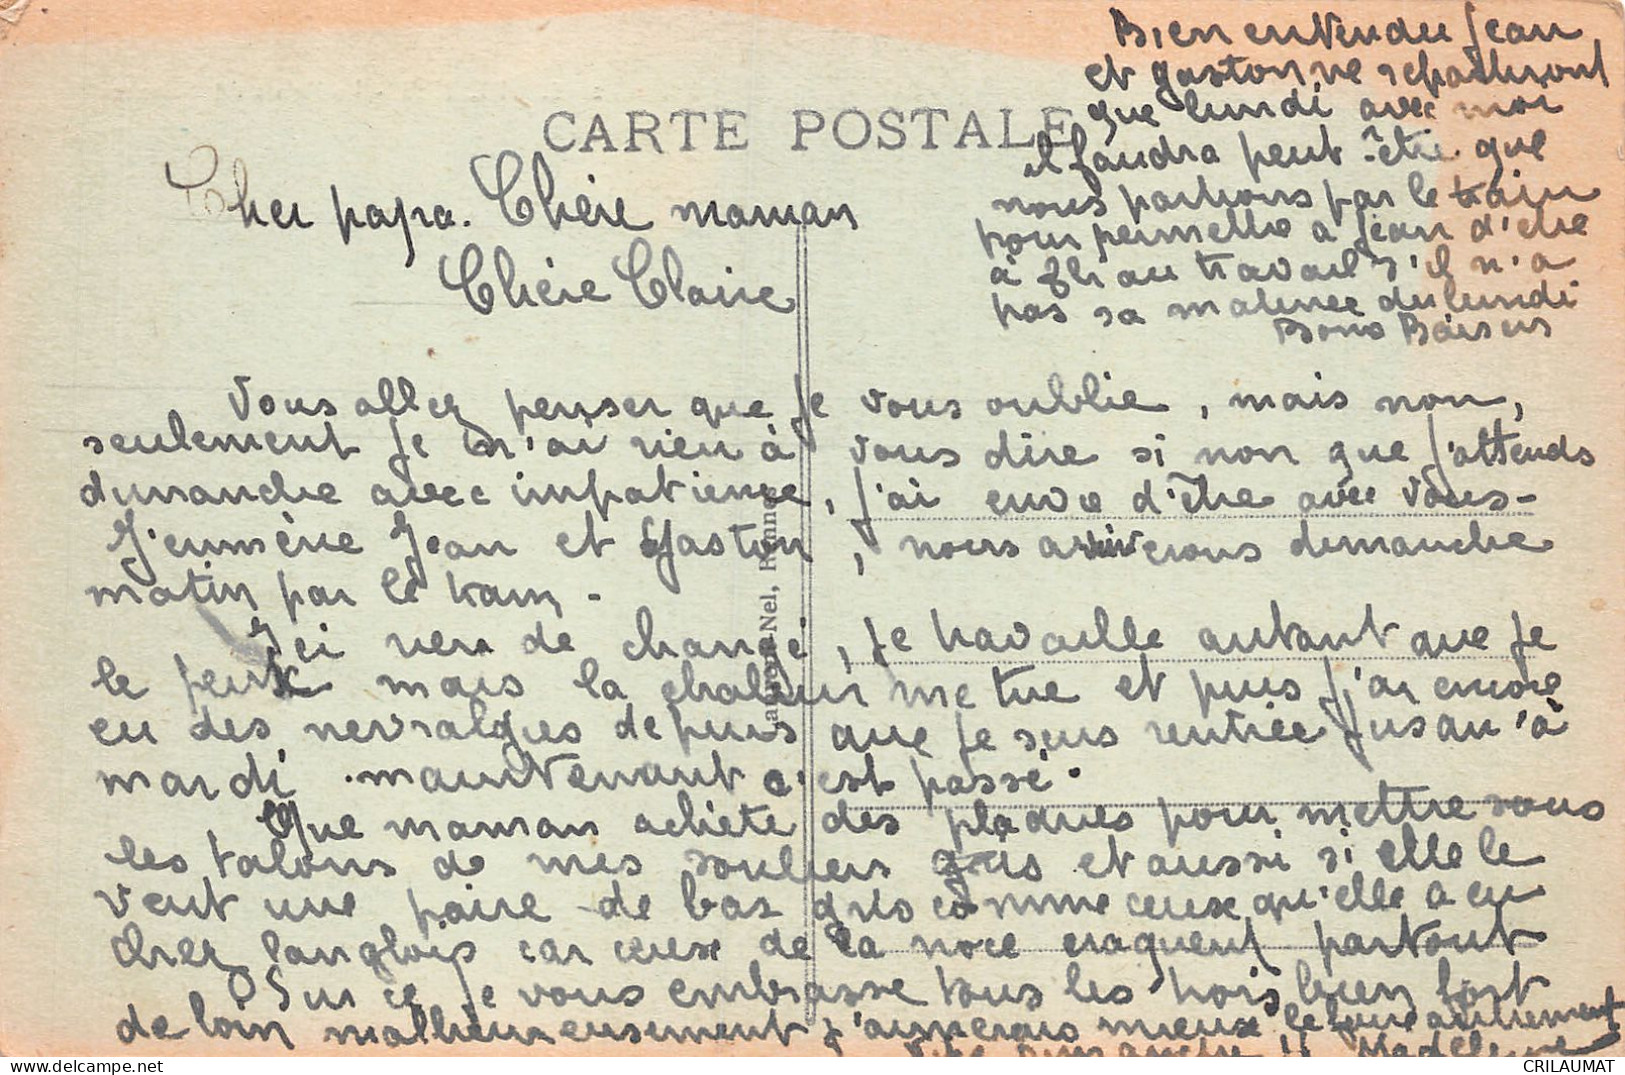 Bien entendu Jean
et gaston ne repartiront
que lundi avec moi
il faudra peut-être que
nous partions par le train
pour permettre a Jean d'etre
à 8h au travail s'il n'a
pas sa matinée du lundi
Bons Baisers
CARTE POSTALE
Cher papa. Chère maman
Chère Claire
Vous allez penser que je vous oublie, mais non,
seulement je n'ai rien à vous dire si non que j'attends
dimanche avec impatience, j'ai envie d'être avec vous-
J'emmène Jean et Gaston, nous arriverons dimanche
matin par le train.
Ici rien de changé, je travaille autant que je
le peux mais la chaleur me tue et puis j'ai encore
eu des nevralgies depuis que je suis rentrée jusqu'à
mardi. maintenant c'est passé.
Que maman achète des plaques pour mettre sous
les talons de mes souliers gris et aussi si elle le
veut une paire de bas gris comme ceux qu'elle a eu
chez langlois car ceux de la noce craquent partout
Sur ce je vous embrasse tous les trois bien fort
de loin malheureusement j'aimerais mieux le faire autrement
Vite dimanche !! Madeleine
Nel, Rennes
CRILAUMAT